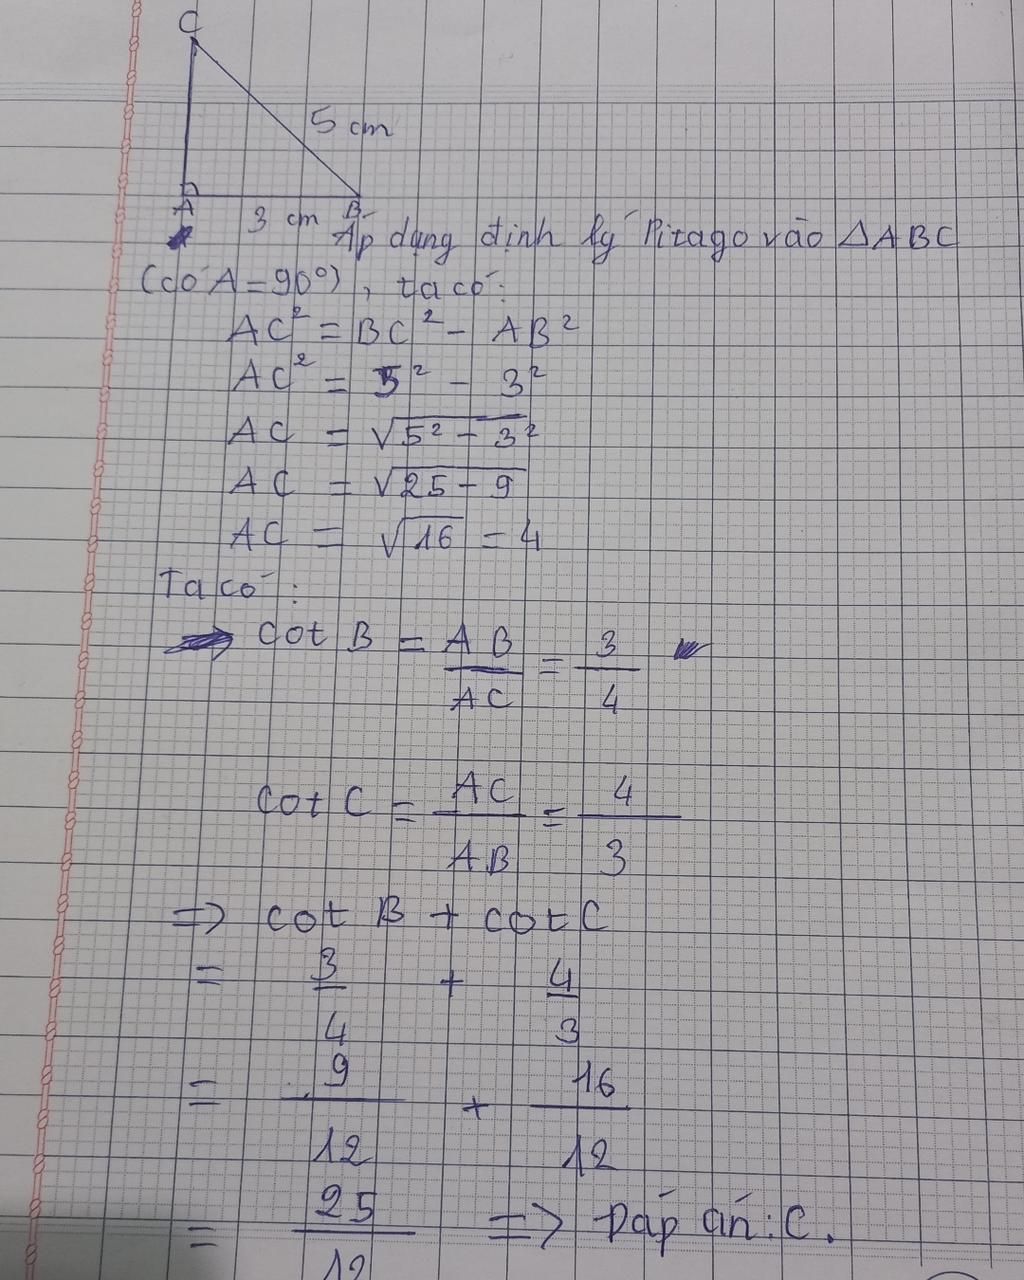 C
5 cm
A 3 cm B
Áp dụng định lý Pitago vào ΔABC
(có A = 90°), ta có:
AC² = BC² - AB²
AC² = 5² - 3²
AC = √5² - 3²
AC = √25 - 9
AC = √16 = 4
Ta có:
=> cot B = AB/AC = 3/4
cot C = AC/AB = 4/3
=> cot B + cot C
= 3/4 + 4/3
= 9/12 + 16/12
= 25/12 => Đáp án: C.